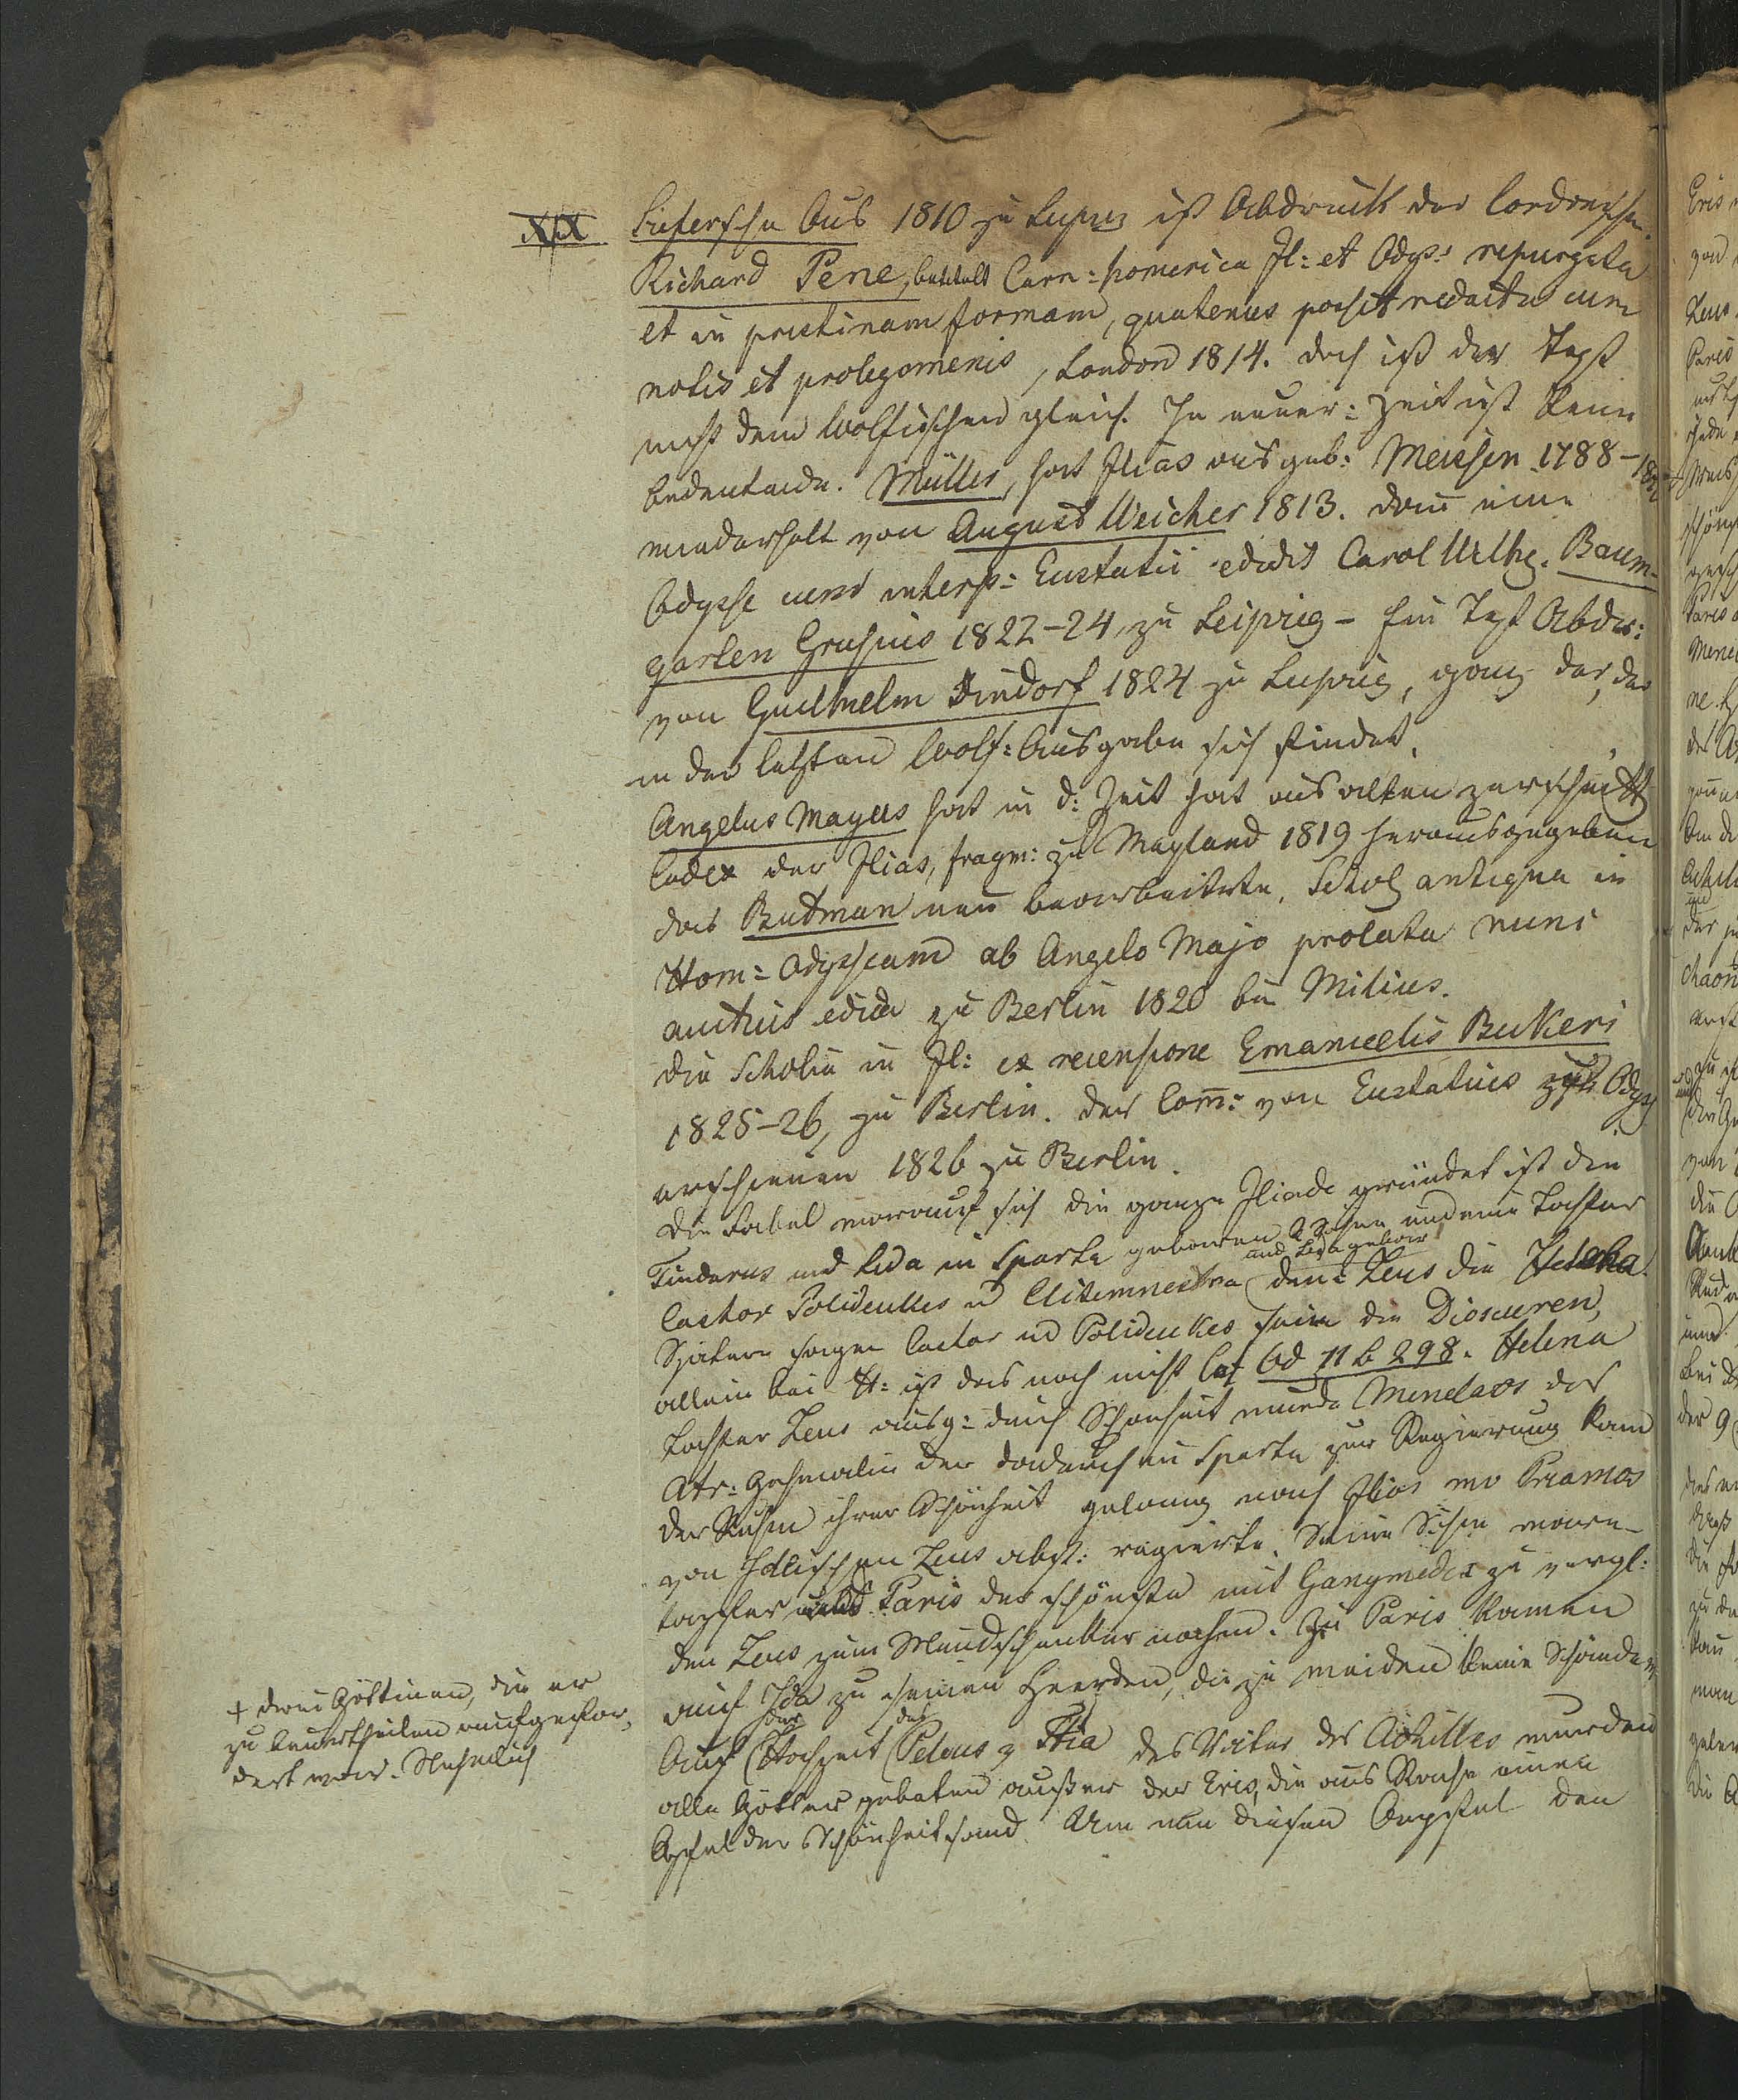 XIX
Schefersche Ausg 1810 zu Leipzig ist Abdruck der Londonschen
Richard Pene, betitelt Carm: homerica Jl: et Odyss: repurgata
et in pristinam formam, quatenus possit redacta cum
notis et prolegomenis, London 1814. doch ist der Text
nicht dem Wolfischen gleich. In neuer: Zeit ist keine
bedeutende. Müller, hat Ilias ausgeb: Meissen 1788–
wiederholt von August Weicher 1813. dann eine
Odysse cum interp: Eustatii edidit Carol Wilhe. Baum-
garten Grusius 1822–24, zu Leipzig – Ein Text Abdr:
von Guilhelm Dindorf 1824 zu Leipzig, ganz der, der
in der letzten Wolf: Ausgabe sich findet.
Angelus Mayus hat in d: Zeit hat aus alten
Codex der Ilias, fragm: zu Mayland 1819 herausgegeben
das Butman neu bearbeitete. Schol antiqua in
Hom: Odysseam ab Angelo Majo prolata nunc
auctius edita zu Berlin 1820 bei Milius.
die Scholie in Jl: ex recensione Emanuelis Bekeri
1825–26, zu Berlin. der Com: von Eustatius zur Odyss
erschienen 1826 zu Berlin.
Die Fabel worauf sich die ganze Iliade gründet ist den
Tindarus und Leda in Sparta geboren 2 Söhne und eine Tochter
und Leda gebar
Castor Polideukes u Clitemnestra dem Zeus die Helena
Spätere sagen Castor und Polideukes seien die Dioscuren,
allein bei H: ist das noch nicht Od 11 b 298. Helena
Tochter Zeus ausg: durch Schönheit wurde Menelaos des
Atr: Gehmalin der dadurch in Sparta zur Regierung kam
der Ruhm ihrer Schönheit gelang nach Ilios wo Priamos
von Zeus abst: regierte. Seine Söhne waren
tapfer und Paris der schönste mit Ganymedes zu vergl:
den Zeus zum Mundschenken nahm. Zu Paris kamen
auf Ida zu seinen Heerden, die zu weiden keine Schande war
der des
Auf Hochzeit Peleus z Ftia des Vater des Achilles wurden
alle Götter gebeten außer der Eris, die aus Rache einen
Apfel der Schönheit sand Um nun diesen Apfel den
+ drei Göttinen, die er
zu beurtheilen aufgefor-
dert war. Nehmlich